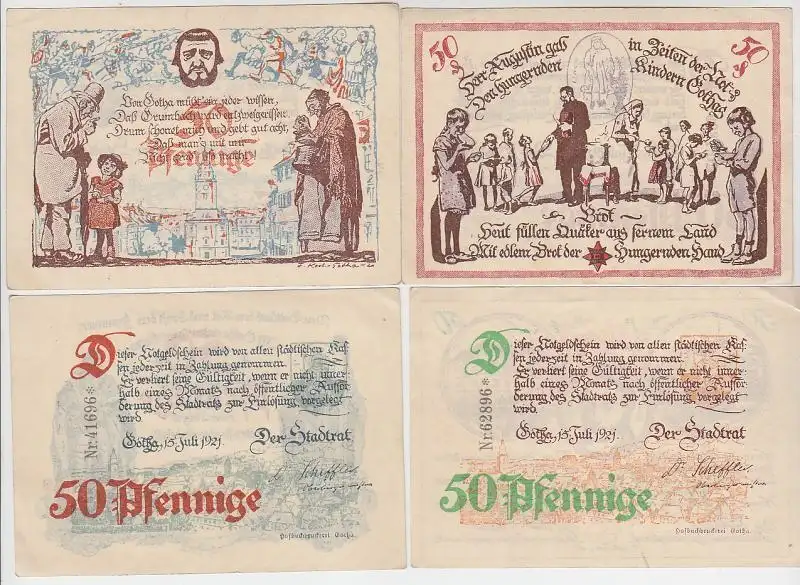 Von Gotha müßt ein jeder wissen,
Daß Grumbach ward entzweigerissen.
Drum schonet mich und gebt gut acht,
Daß man's mit mir nicht macht!
Pfennige
50
50
Der Augustin gab in Zeiten der Not
Den hungernden Kindern Gothas
Brot
Heut füllen Quäker aus fernem Land
Mit edlem Brot der Hungernden Hand
Dieser Notgeldschein wird von allen städtischen Kas-
sen jederzeit in Zahlung genommen.
Er verliert seine Gültigkeit, wenn er nicht inner-
halb eines Monats nach öffentlicher Auffor-
derung des Stadtrats zur Einlösung vorgelegt
wird.
Gotha, 15. Juli 1921. Der Stadtrat
Dr Scheffler
50 Pfennige
Hofbuchdruckerei Gotha.
Nr. 41696*
Dieser Notgeldschein wird von allen städtischen Kas-
sen jederzeit in Zahlung genommen.
Er verliert seine Gültigkeit, wenn er nicht inner-
halb eines Monats nach öffentlicher Auffor-
derung des Stadtrats zur Einlösung vorgelegt
wird.
Gotha, 15. Juli 1921. Der Stadtrat
Dr Scheffler
50 Pfennige
Hofbuchdruckerei Gotha.
Nr. 62896*